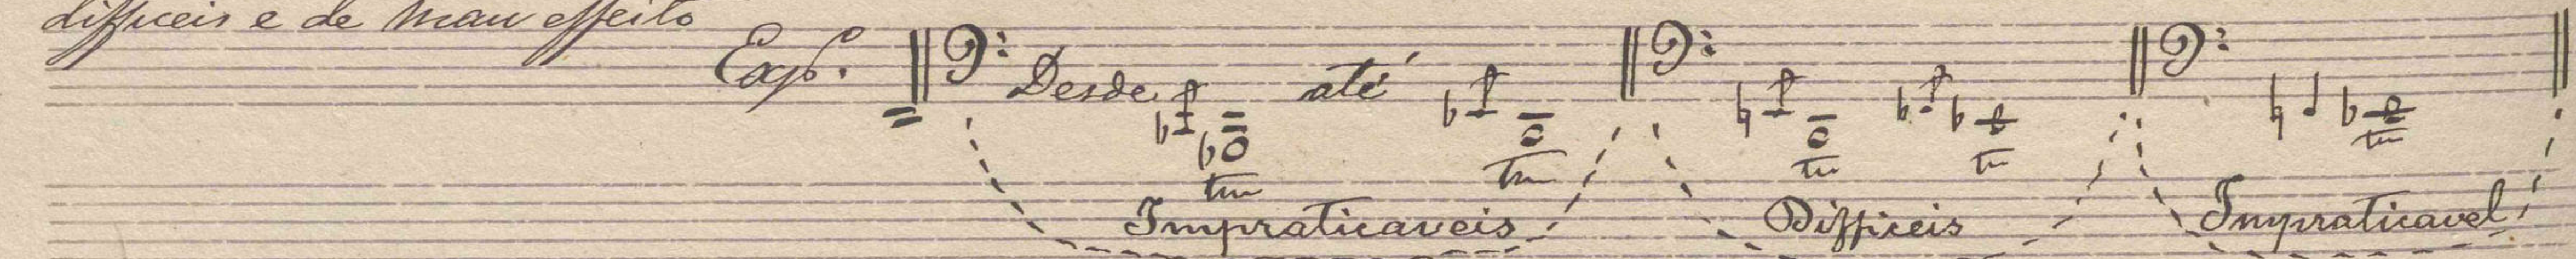 difficeis e de mau effeito
Exp.
Desde até
tm tm tm tm tm
Impraticaveis Difficeis Impraticavel